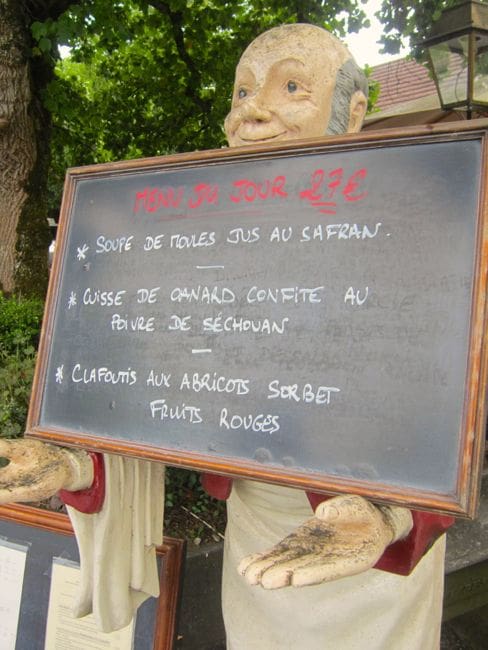 MENU DU JOUR 27€
* SOUPE DE MOULES JUS AU SAFRAN.
* CUISSE DE CANARD CONFITE AU
POIVRE DE SÉCHOUAN
* CLAFOUTIS AUX ABRICOTS SORBET
FRUITS ROUGES